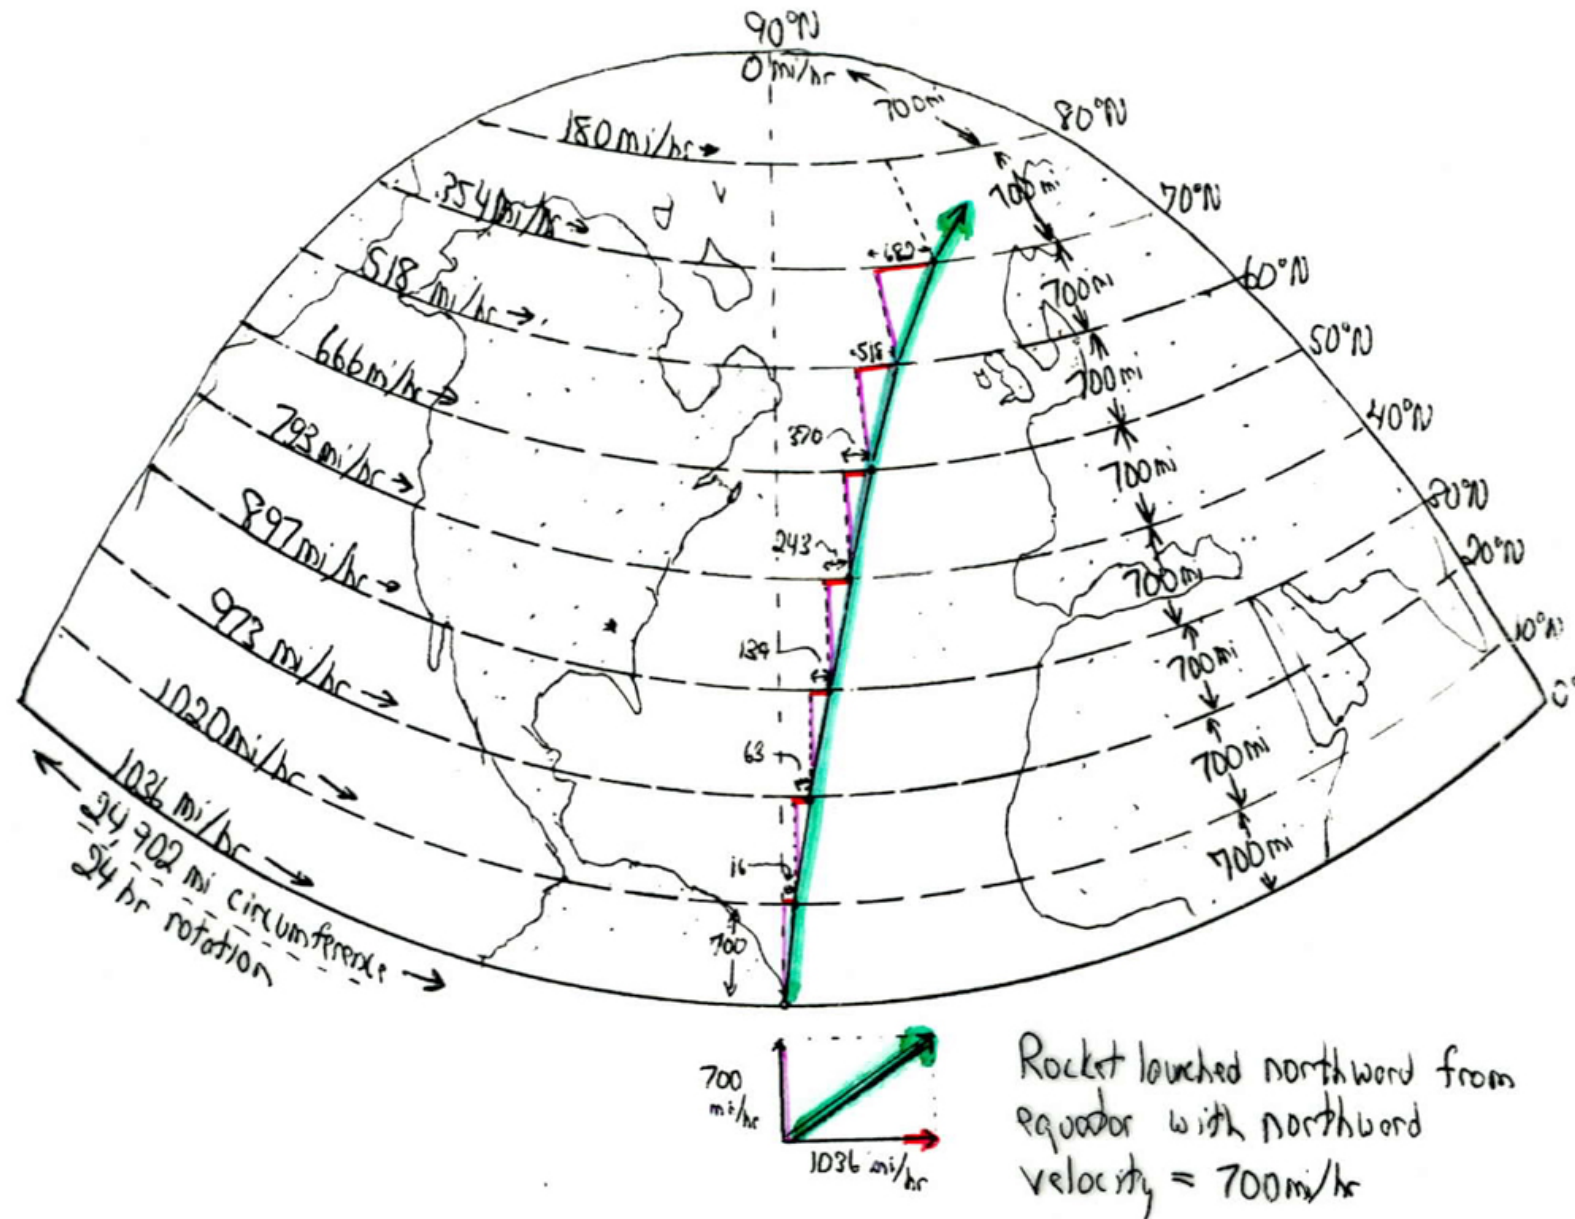 90°N
0 mi/hr
700mi
80°N
180mi/hr
700mi
70°N
354mi/hr
682
700mi
60°N
518 mi/hr
518
700mi
50°N
666mi/hr
700mi
40°N
793mi/hr
370
700mi
30°N
897mi/hr
243
700mi
20°N
973 mi/hr
139
700mi
10°N
1020mi/hr
63
700mi
0°
1036 mi/hr
16
700mi
24902 mi circumference
24 hr rotation
700
700
mi/hr
1036 mi/hr
Rocket lounched northward from
equator with northward
velocity = 700mi/hr